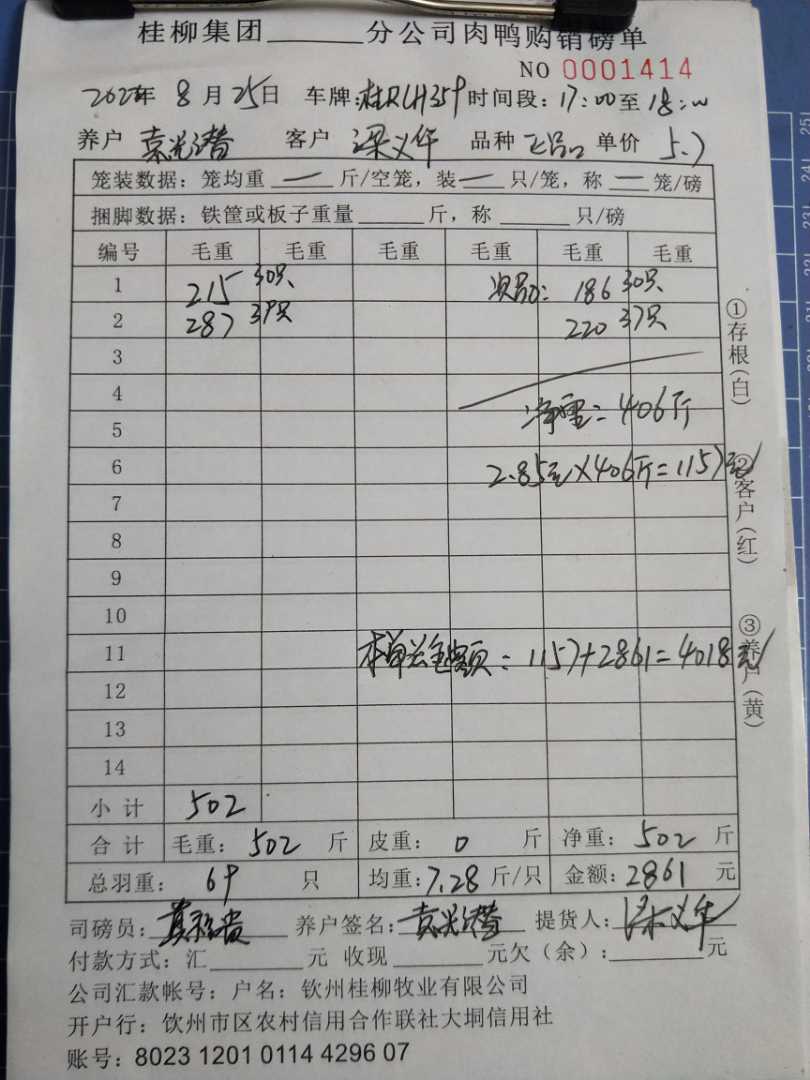 桂柳集团______分公司肉鸭购销磅单
NO 0001414
8月25日 车牌:桂RLH359 时间段:17:00至18:00
养户 袁光潜 客户 梁义华 品种 正品 单价 5.7
笼装数据:笼均重 一 斤/空笼,装 一 只/笼,称 一 笼/磅
捆脚数据:铁筐或板子重量______斤,称______只/磅
编号 毛重 毛重 毛重 毛重 毛重 毛重
1 215 30只 次品: 186 30只
2 287 39只 220 37只
3
4 净重=406斤
5
6 2.85元×406斤=1157元
7
8
9
10
11 本单总金额:1157+2861=4018元
12
13
14
小计 502
合计 毛重:502斤 皮重:0斤 净重:502斤
总羽重:69只 均重:7.28斤/只 金额:2861元
司磅员: 养户签名:袁光潜 提货人:梁义华
付款方式:汇______元 收现______元欠(余):______元
公司汇款帐号:户名:钦州桂柳牧业有限公司
开户行:饮州市区农村信用合作联社大垌信用社
账号:8023 1201 0114 4296 07
①存根(白)
②客户(红)
③养户(黄)